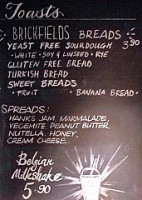 Toasts
BRICKFIELDS BREADS -
YEAST FREE SOURDOUGH 3.90
- WHITE - SOY & LINSEED - RYE
GLUTEN FREE BREAD
TURKISH BREAD
SWEET BREADS
- FRUIT - BANANA BREAD -
SPREADS:
HANKS JAM, MARMALADE,
VEGEMITE, PEANUT BUTTER,
NUTELLA, HONEY.
CREAM CHEESE.
Belgian
Milkshake
5.90